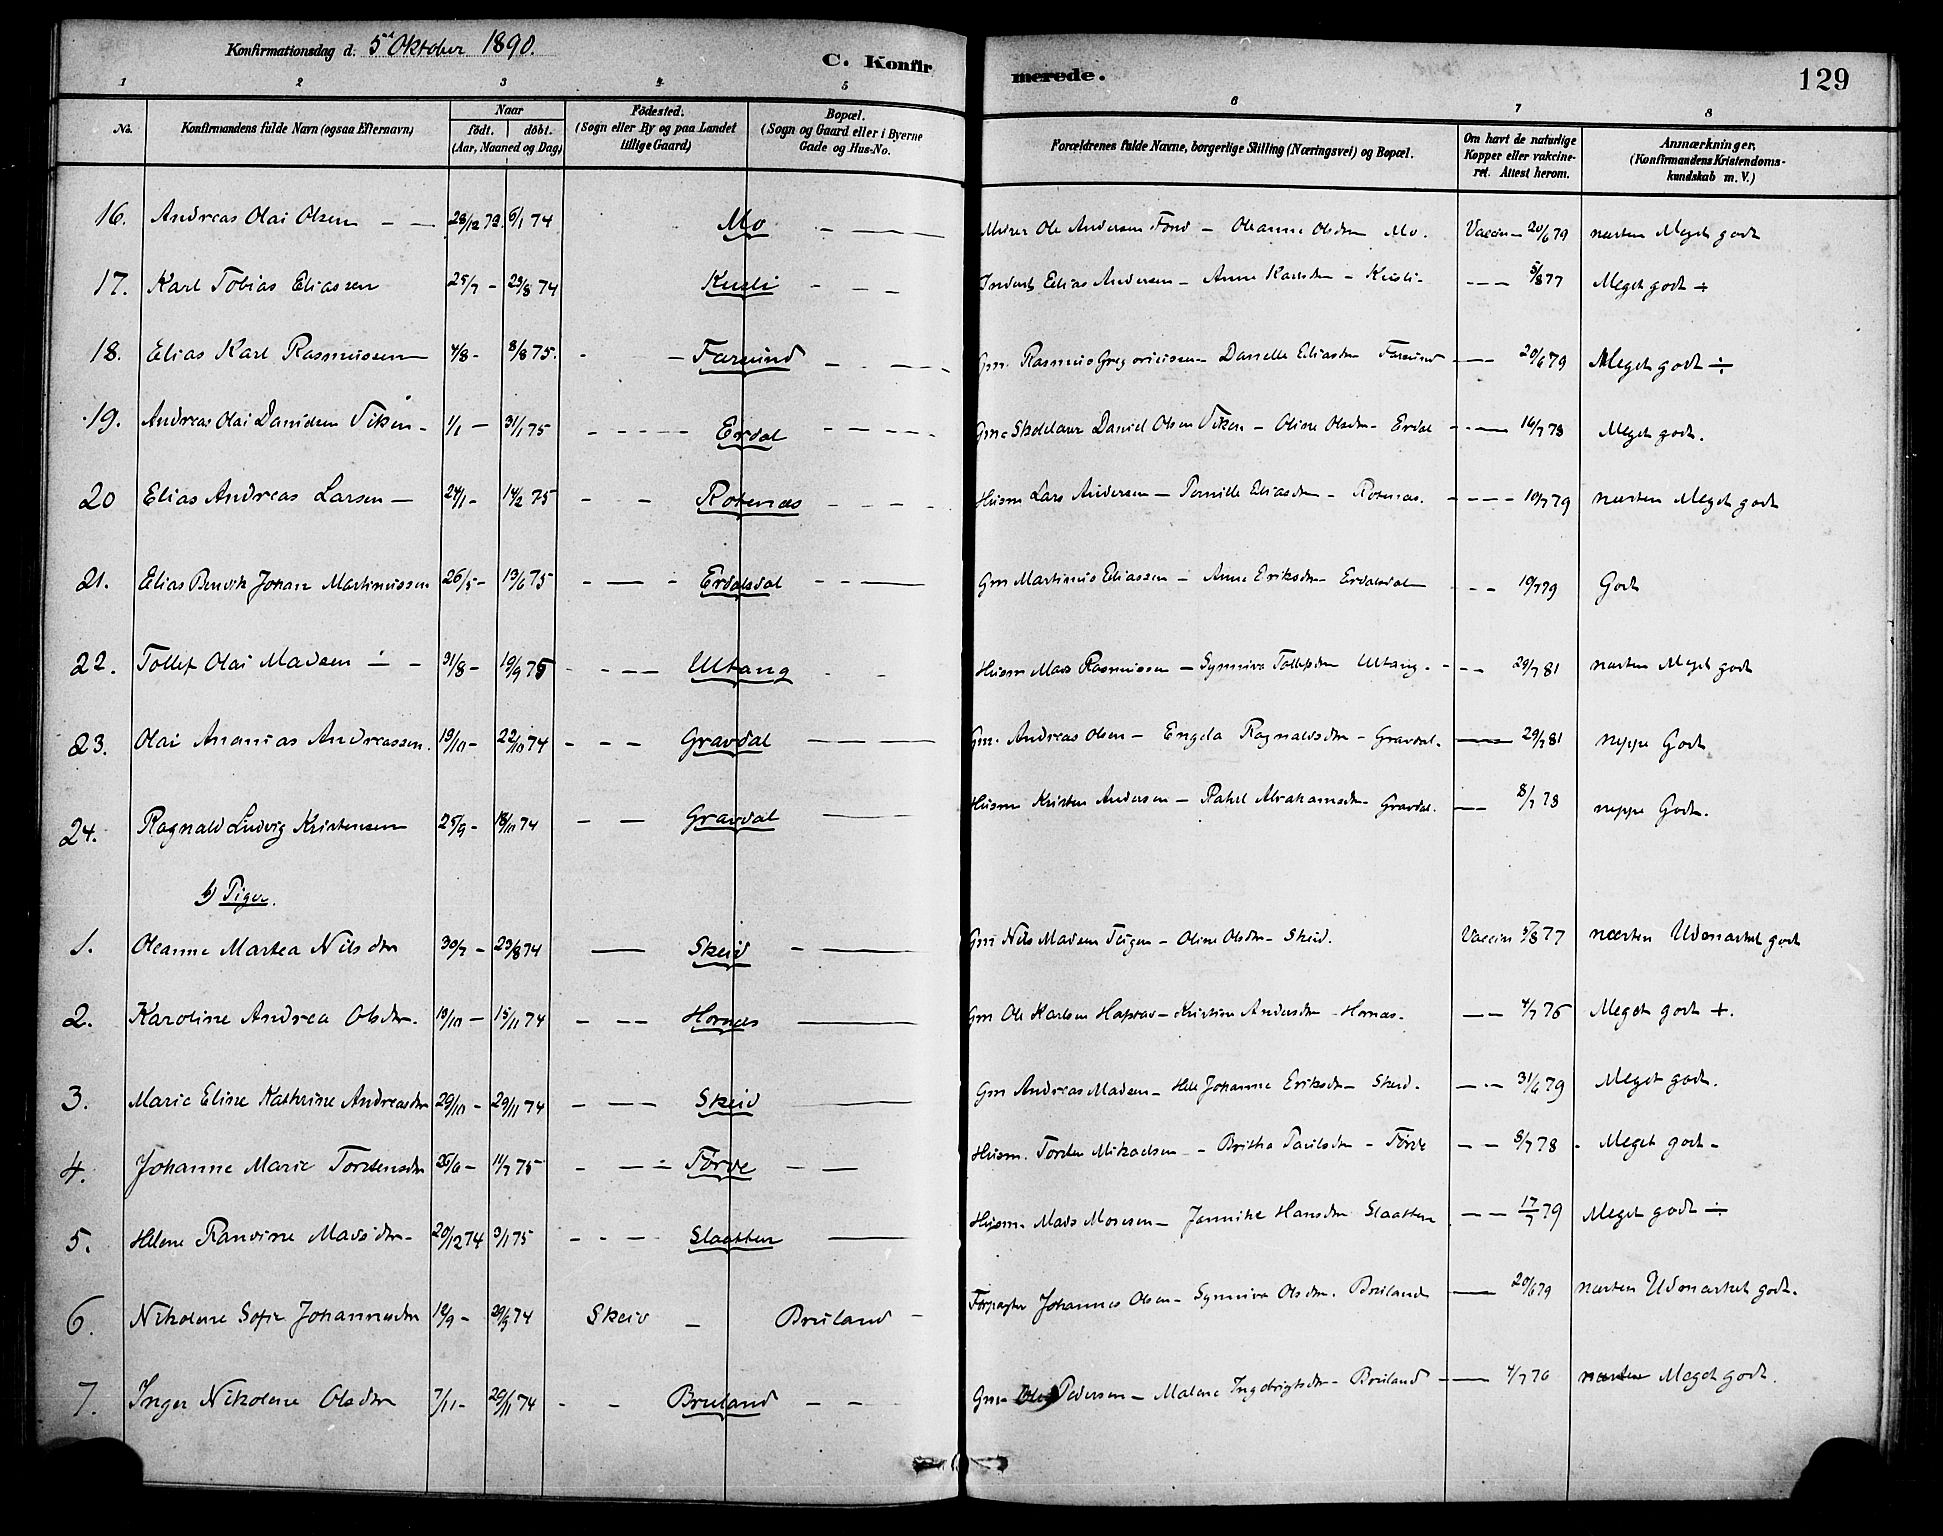 Konfirmationsdag d. 5te Oktober 1890. C. Konfirmerede. 129
1 2 3 4 5 6 7 8
No. Konfirmandens fulde Navn (ogsaa Efternavn) Naar födt. döbt. (Aar, Maaned og Dag) Födested. (Sogn eller By og paa Landet tillige Gaard) Bopæl. (Sogn og Gaard eller i Byerne Gade og Hus-No. Forældrenes fulde Navne, borgerlige Stilling (Næringsvei) og Bopæl. Om havt de naturlige Kopper eller vakcineret. Attest herom. Anmærkninger. (Konfirmandens Kristendomskundskab m. V.)
16. Andreas Olai Olsen — — 28/12 73. 6/1 74 Mo — — Ole Andersen Fond — Oleanne Olsdtr Mo. Vaccin — 20/6 79 næsten Meget godt
17. Karl Tobias Eliassen 25/7 — 23/8 74 Kusli - — — Inderst Elias Andersen — Anne Karlsdtr — Kusli - - — — 5/8 77 Meget godt ÷
18. Elias Karl Rasmussen 4/8 - 8/8 75. - — Farsund - — — Gm. Rasmus Gregoriussen — Danielle Eliasdtr Farsund — — 20/6 79 Meget godt ÷
19. Andreas Olai Danielsen Viken - 1/1 — 31/1 75 - — — Erdal - — — Gm & Skolelærer Daniel Olsen Viken — Oline Olsdtr - Erdal - — 16/7 78 Meget godt.
20 Elias Andreas Larsen — 24/1 - 14/2 75 - — Rotenæs - — — Husm Lars Andersen — Pernille Eliasdtr - Rotenæs. - — — 10/7 79 næsten Meget godt
21. Elias Benvik Johan Martinussen 26/5 - 13/6 75 - — - Erdalsdal - — — Gm Martinus Eliassen — Anne Eriksdtr - Erdalsdal - — — 10/7 79 Godt
22. Tollef Olai Madsen ÷ - 31/8 - 19/9 75 - — — Utvang - - Husm Mads Rasmussen — Synnive Tollefsdtr Utvang. - — — 29/7 81 næsten Meget godt
23. Olai Ananias Andreassen. 19/10 - 22/10 74 - — — Gravdal — — Gm. Andreas Olsen — Engela Ragnaldsdtr - Gravdal. — 29/7 81 neppe Godt
24. Ragnald Ludvig Kristensen 25/9 - 18/11 74 — — Gravdal — Husm Kristen Andersen — Rakel Abrahamsdtr - Gravdal. — 8/7 78 neppe Godt.
b) Piger.
1. Oleanne Martea Nilsdtr 30/7 — 23/8 74 — Skeid - — Gm Nils Madsen Teigen — Oline Olsdtr - Skeid. Vaccin 5/8 77 næsten Udmærket godt
2. Karoline Andrea Olsdtr. 19/10 — 15/11 74 - — — Hornæs — Gm Ole Karlsen — Kristine Andersdtr - Hornæs - — — 4/7 76 Meget godt +.
3. Marie Eline Kathrine Andreasdtr 29/10 - 29/11 74 - — — Skeid — Gm Andreas Madsen — Johanne Eriksdtr — Skeid. — — 31/6 79 Meget godt.
4. Johanne Marie Torstensdtr 26/6 - 11/7 75 - — — Førde — — Husm. Torsten Mikaelsen — Britha Paulsdtr — Førde — — 8/7 78 - Meget godt -
5. Helene Ranvine Madsdtr - 20/12 74 3/1 75 - — — Slaatten — Husm. Mads Monsen — Jannike Hansdtr Slaatten — — 17/7 79 Meget godt ÷
6. Nikoline Sofie Johannesdtr 12/9 - 29/9 74 Skeid - Bruland - Forpagter Johannes Olsen - Synniva Olsdtr. Bruland — 20/6 79 næsten Udmærket godt.
7. Inger Nikoline Olsdtr 7/11 - 29/11 74 - - Bruland - — Gm Ole Pedersen — Malene Ingebrigtsdtr - Bruland — 4/7 76 næsten Meget godt.